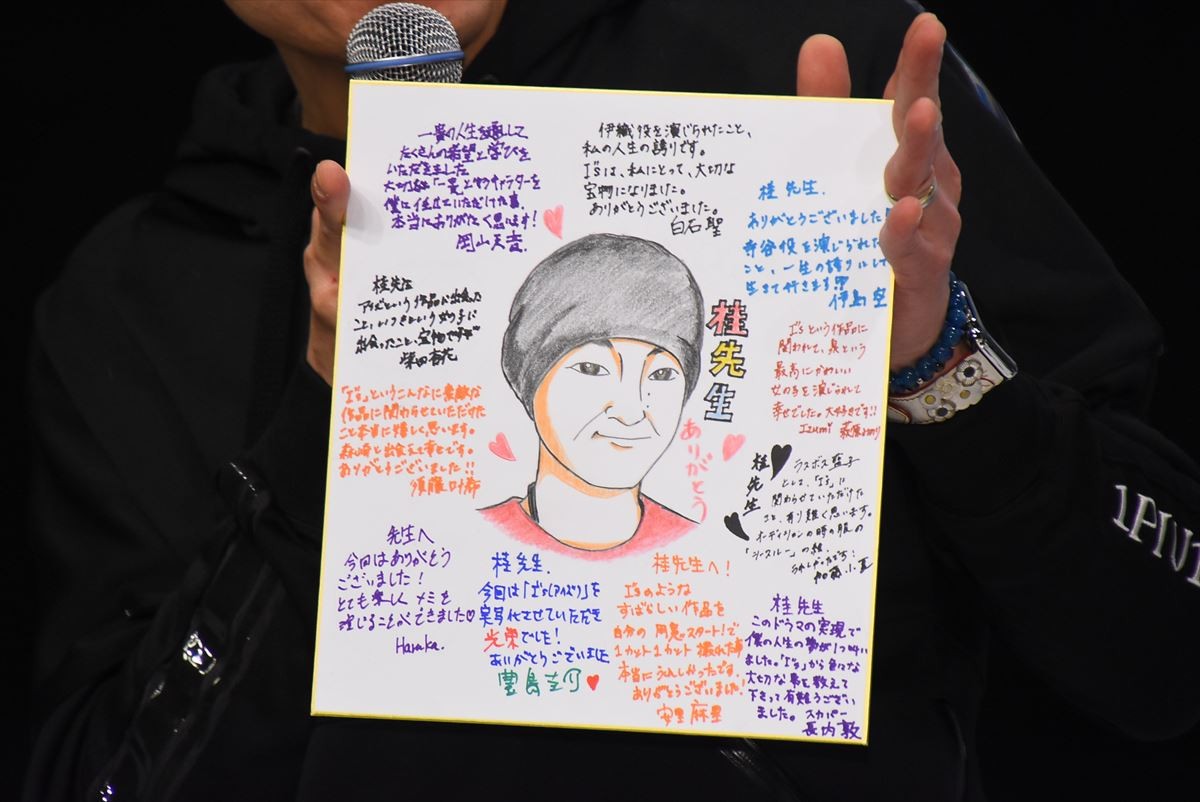 一貴の人生を通して
たくさんの希望と学びを
いただきました
大切な「一貴」というキャラクターを
僕に任せていただけた事、
本当にありがたく思います!
岡山天音.
伊織役を演じられたこと、
私の人生の誇りです。
I"sは、私にとって、大切な
宝物になりました。
ありがとうございました。
白石聖
桂先生.
ありがとうございました!
寺谷役を演じられた
こと、一生の誇りにして
生きて行きます!!
伊島空
桂先生
アイズという作品に出会った
こと、いつきという女の子に
出会ったこと、宝物です
柴田杏花
I"sという作品に
関われて、泉という
最高にかわいい
女の子を演じられて
幸せでした。大好きです!!
Izumi 萩原みのり
「I"s」というこんなに素敵な
作品に関わらせていただけた
こと本当に嬉しく思います。
森崎と出会えて幸せです。
ありがとうございました!!
須藤叶希
桂先生
ありがとう
桂先生
ラスボス藍子
として、「I"s」に
関わらせていただけた
こと、有り難く思います。
オーディションの時の服の
「シースルー」の絵、
うれしかったです!
加藤小夏
先生へ
今回はありがとう
ございました!
とても楽しくナミを
演じることができました♡
Haruka.
桂先生.
今回は「I"s(アイズ)」を
実写化させていただき
光栄でした!
ありがとうございました
豊島圭介
桂先生へ!
I"sのような
すばらしい作品を
自分の用意スタート!で
1カット1カット撮れた事
本当にうれしかったです。
ありがとうございました!
安里麻里
桂先生
このドラマの実現で
僕の人生の夢が1つ叶い
ました。「I"s」から色々な
大切な事を教えて
下さって有難うござい
ました。スカパー
長内敦
1PIU1